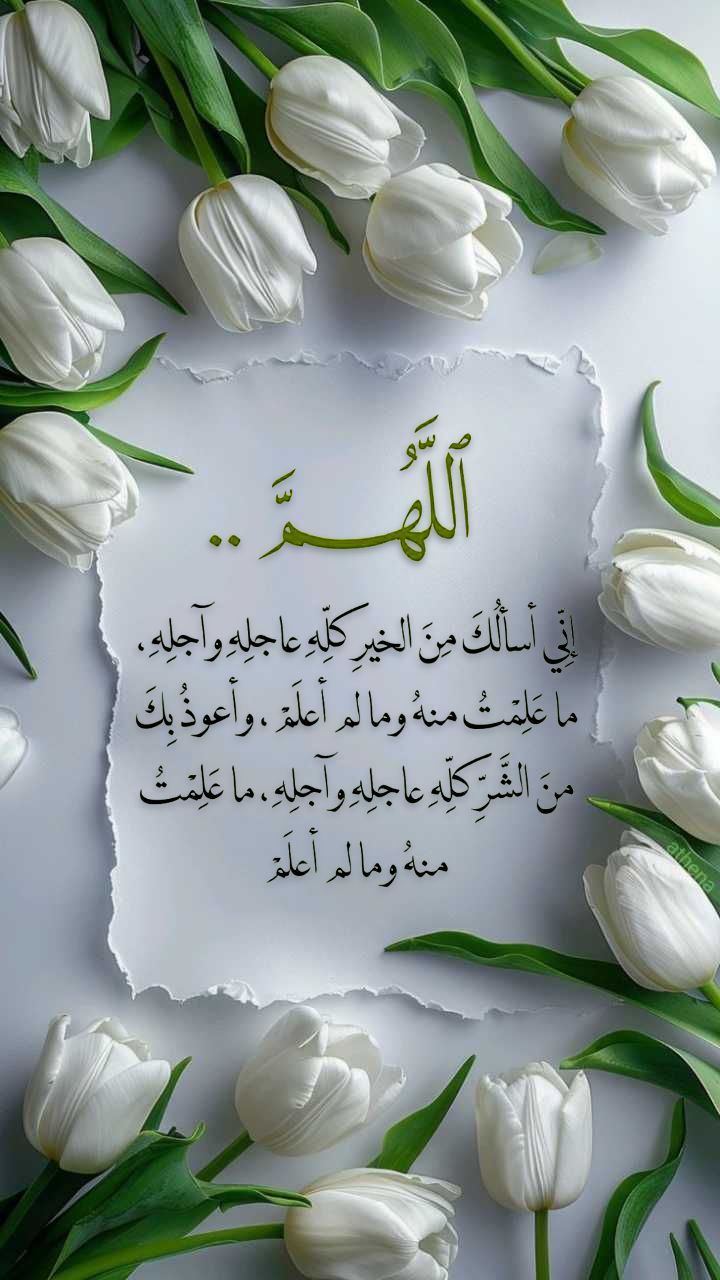 ٱللَّهُمَّ ..
إنِّي أسألُكَ مِنَ الخيرِ كلِّهِ عاجلِهِ وآجلِهِ ،
ما عَلِمْتُ منهُ وما لم أعلَمْ ، وأعوذُ بِكَ
منَ الشَّرِّ كلِّهِ عاجلِهِ وآجلِهِ ، ما عَلِمْتُ
منهُ وما لم أعلَمْ
athena